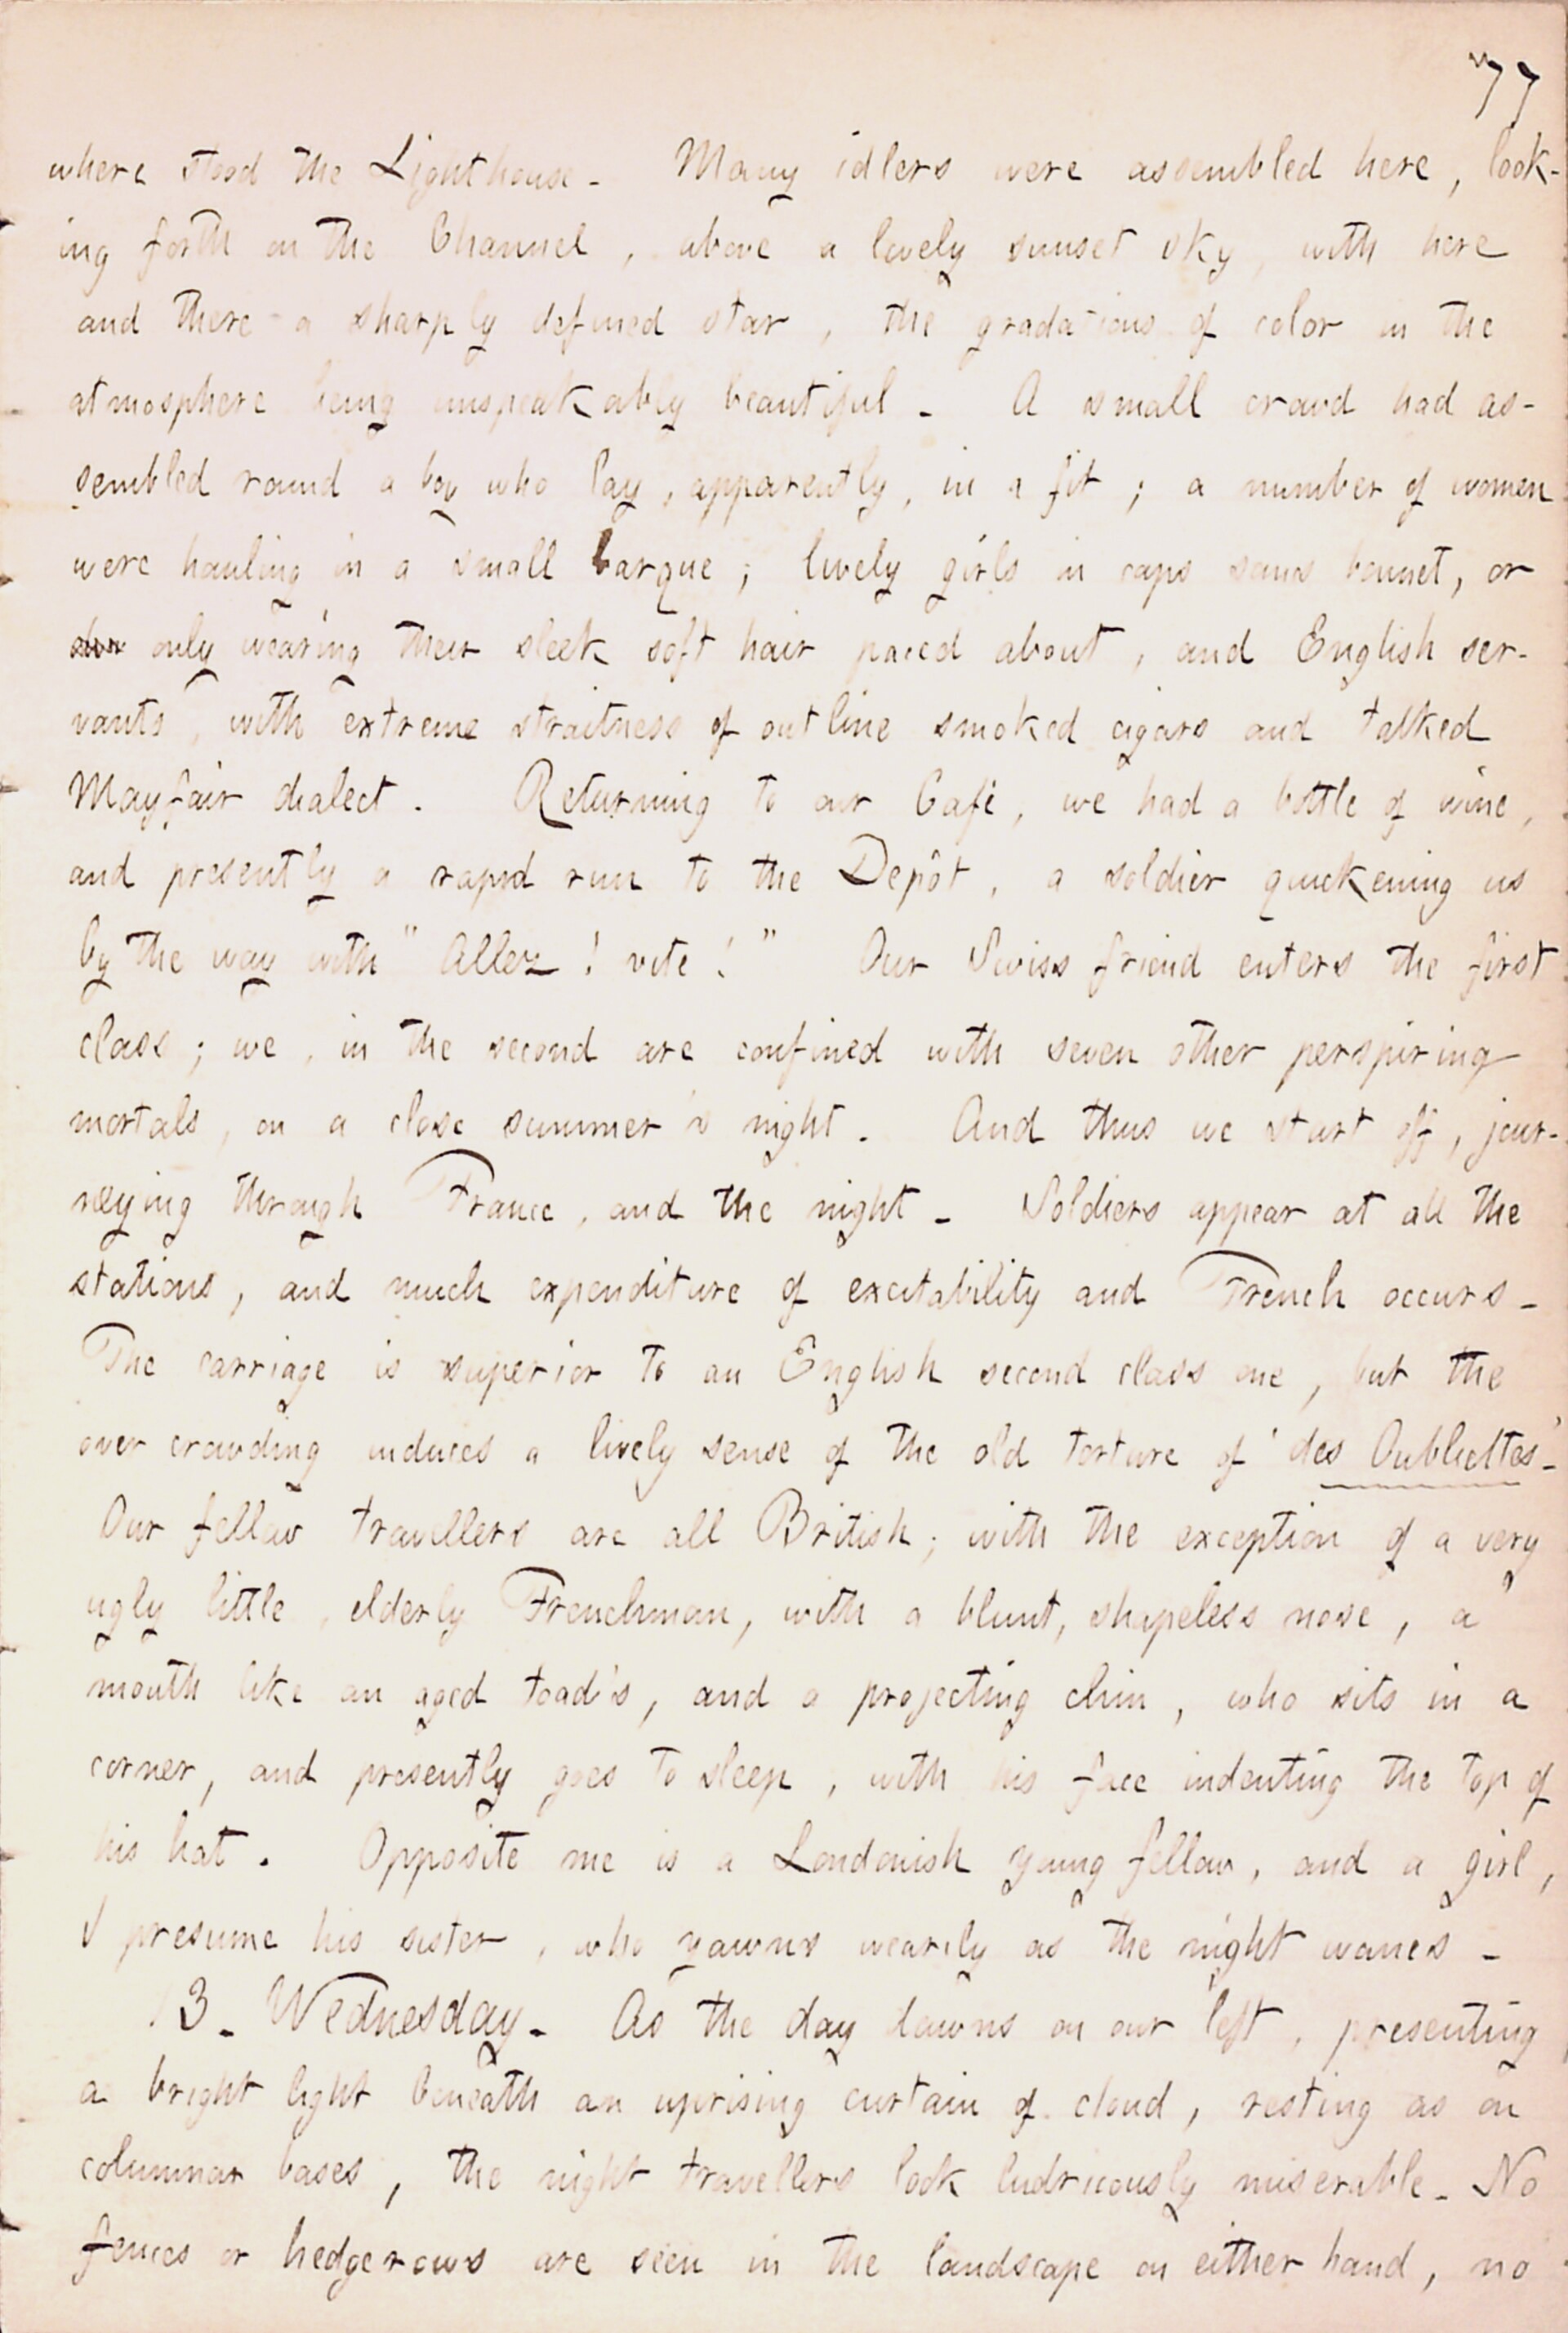 77
where stood the Lighthouse. Many idlers were assembled here, look-
ing forth on the Channel, above a lovely sunset sky, with here
and there a sharply defined star, the gradations of color in the
atmosphere being unspeakably beautiful. A small crowd had as-
sembled round a boy who lay, apparently, in a fit; a number of women
were hauling in a small barque; lively girls in caps sans bonnet, or
only wearing their sleek soft hair paced about, and English ser-
vants, with extreme straitness of outline smoked cigars and talked
Mayfair dialect. Returning to our Café, we had a bottle of wine,
and presently a rapid run to the Depôt, a soldier quickening us
by the way with "Allez! vite!" Our Swiss friend enters the first
class; we, in the second are confined with seven other perspiring
mortals, on a close summer's night. And thus we start off, jour-
neying through France, and the night. Soldiers appear at all the
stations, and much expenditure of excitability and French occurs.
The carriage is superior to an English second class one, but the
over crowding induces a lively sense of the old torture of 'des Oubliettes'.
Our fellow travellers are all British; with the exception of a very
ugly little, elderly Frenchman, with a blunt, shapeless nose, a
mouth like an aged toad's, and a projecting chin, who sits in a
corner, and presently goes to sleep, with his face indenting the top of
his hat. Opposite me is a Londonish young fellow, and a girl,
I presume his sister, who yawns wearily as the night wanes.
13. Wednesday. As the day dawns on our left, presenting
a bright light beneath an uprising curtain of cloud, resting as on
columnar bases, the night travellers look ludricously miserable. No
fences or hedgerows are seen in the landscape on either hand, no